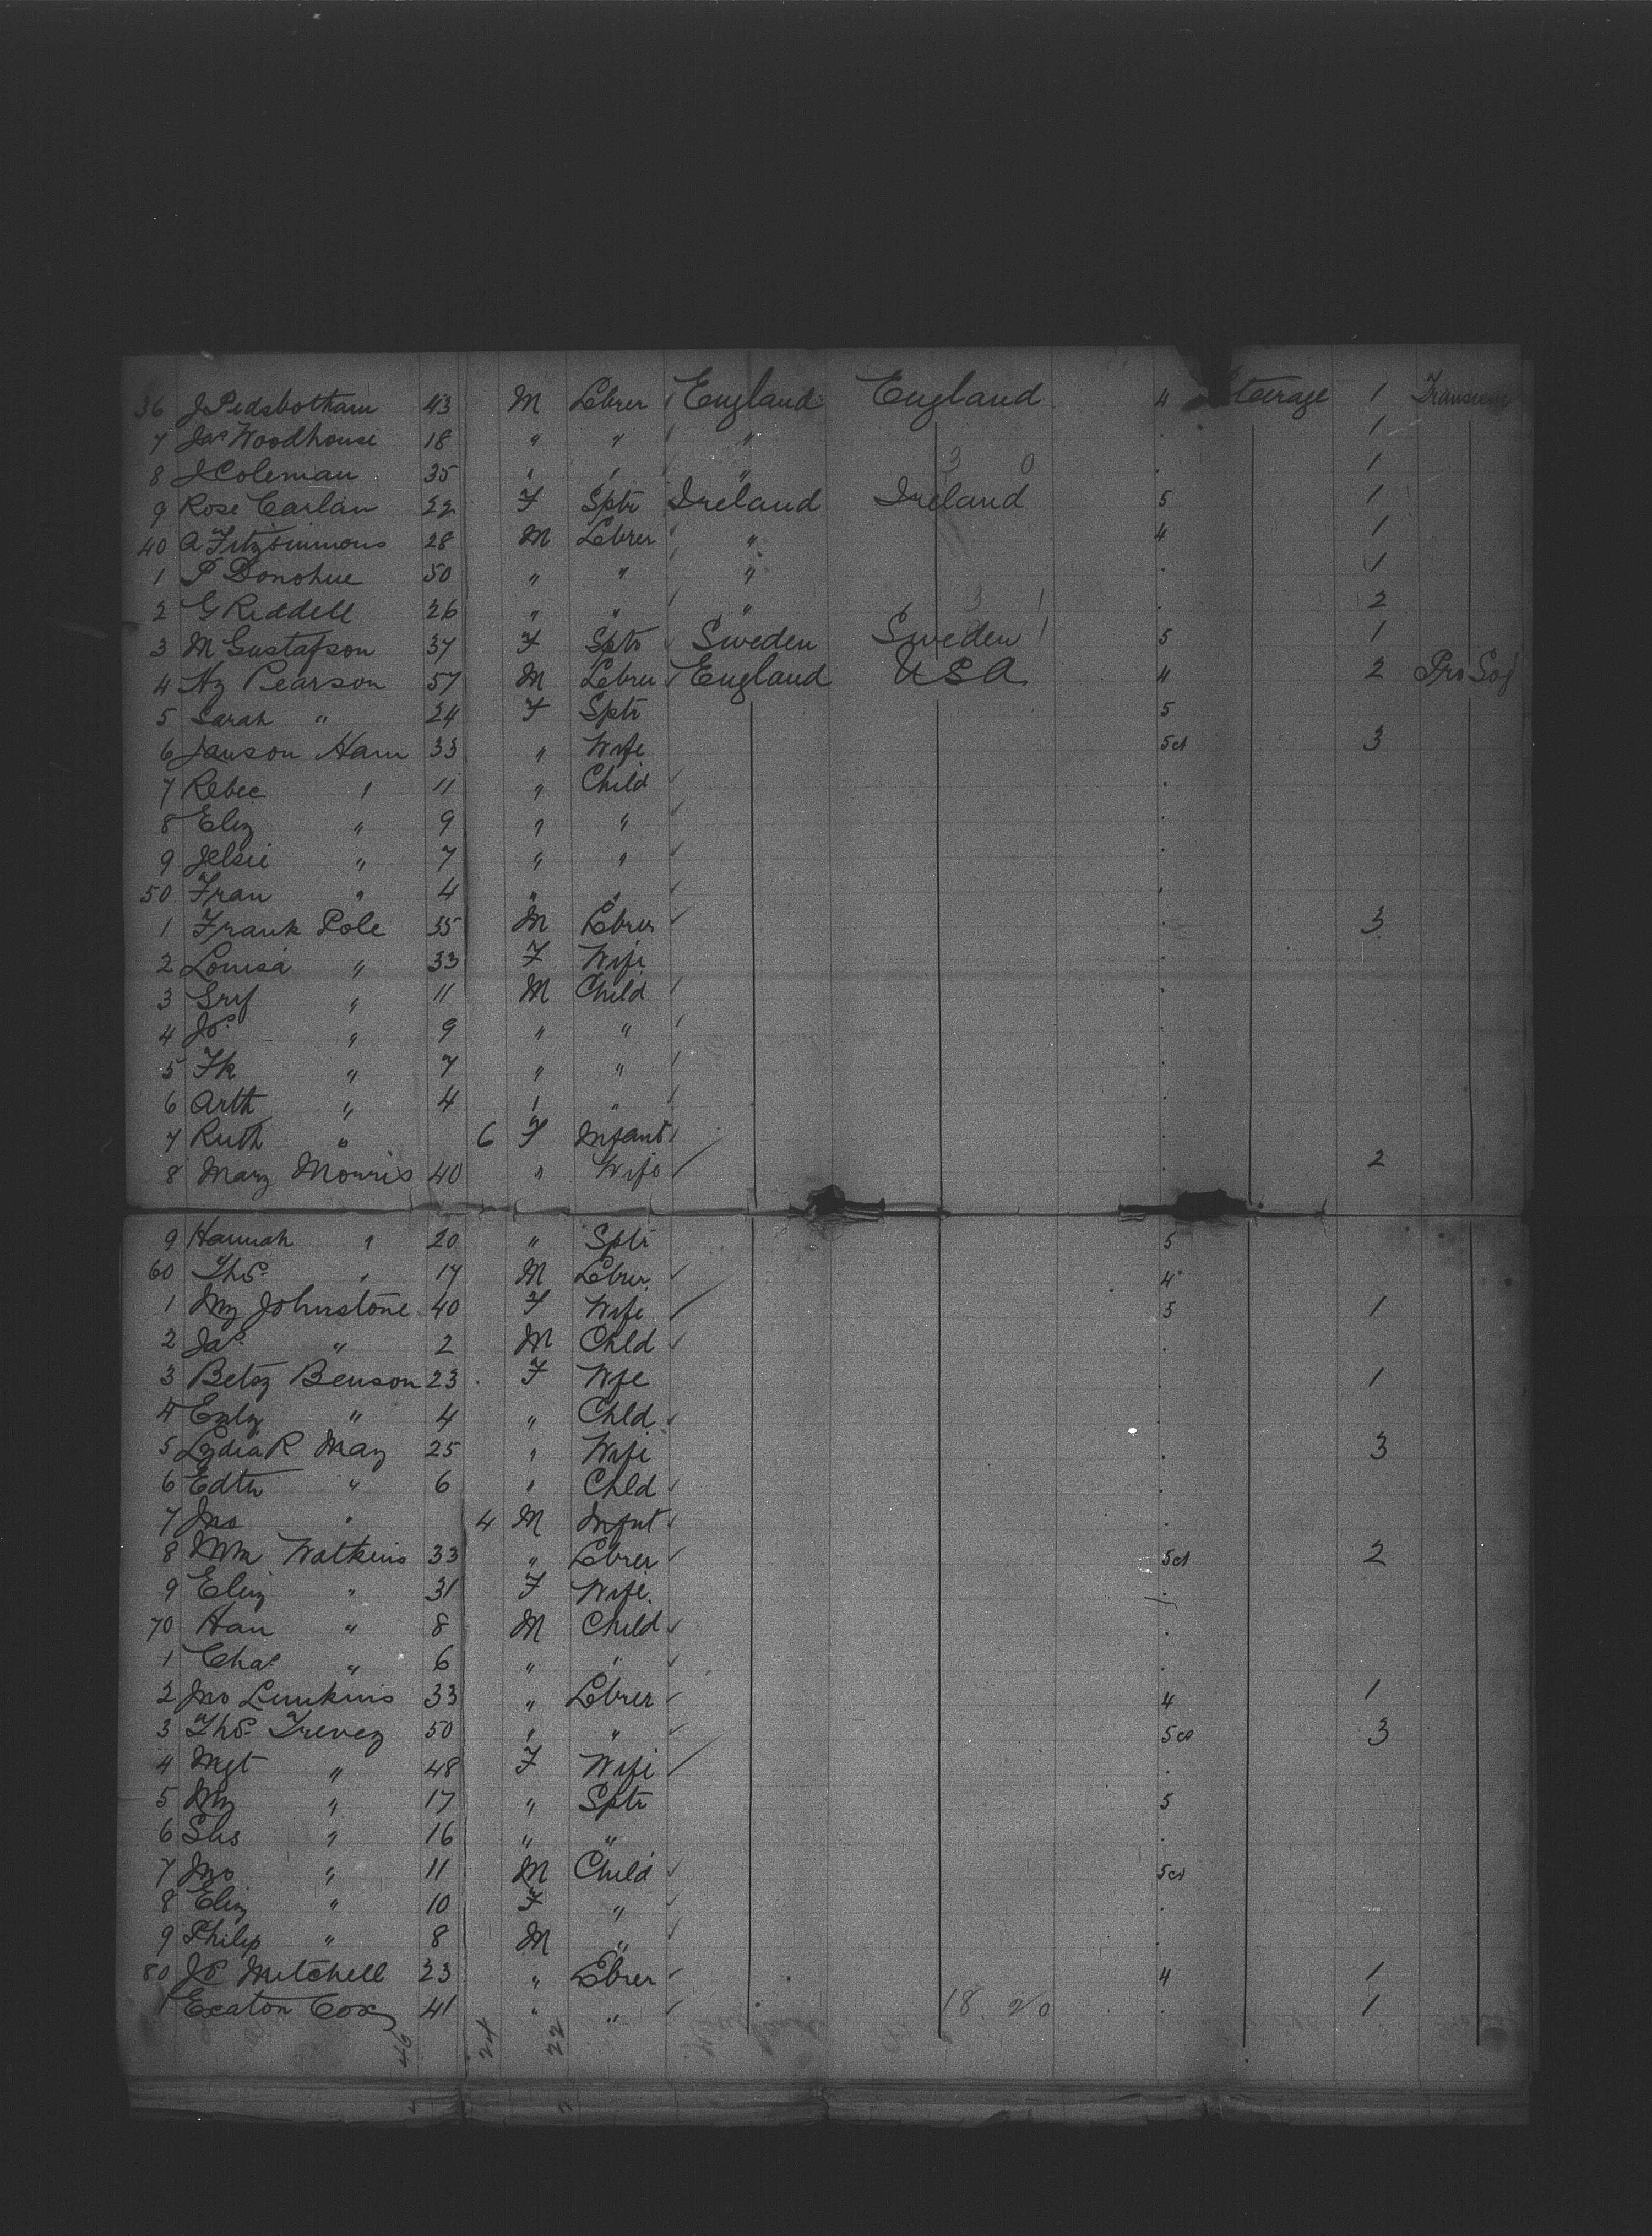 36 J Pedsbotham 43 M Lebrer England England 4 Steerage 1 Transient
7 Jas Woodhouse 18 " " " 1
8 J Coleman 35 " " " 3 0 1
9 Rose Carlan 22 F Sptr Ireland Ireland 5 1
40 A Fitzsimmons 28 M Lebrer " 4 1
1 P Donohue 50 " " " 1
2 G Riddell 26 " " " 3 1 2
3 M Gustafson 37 F Sptr Sweden Sweden 5 1
4 Hy Pearson 57 M Lebrer England USA 4 2 Pro Soj
5 Sarah " 24 F Sptr 5
6 Janson Ham 33 " Wife 5cl 3
7 Rebec " 11 " Child
8 Eliz " 9 " "
9 Jelsie " 7 " "
50 Fran " 4 " "
1 Frank Pole 35 M Lebrer 3
2 Louisa " 33 F Wife
3 Grif " 11 M Child
4 Jos " 9 " "
5 Fk " 7 " "
6 Arth " 4 " "
7 Ruth " 6 F Infant
8 Mary Morris 40 " Wife 2
9 Hannah " 20 " Sptr 5
60 Thos " 17 M Lebrer 4
1 My Johnstone 40 F Wife 5 1
2 Jas " 2 M Chld
3 Betsy Benson 23 F Wfe 1
4 Emly " 4 " Chld
5 Lydia R May 25 " Wife 3
6 Edth " 6 " Chld
7 Jno " 4 M Infnt
8 Wm Watkins 33 " Lebrer 5cl 2
9 Eliz " 31 F Wife
70 Han " 8 M Child
1 Chas " 6 " "
2 Jno Lunkins 33 " Lebrer 4 1
3 Thos Trevez 50 " " 5cl 3
4 Mgt " 48 F Wife
5 My " 17 " Sptr 5
6 Sus " 16 " "
7 Jno " 11 M Child 5cl
8 Eliz " 10 F "
9 Philip " 8 M "
80 Js Mitchell 23 " Lebrer 4 1
1 Exaton Cox 41 " " 18 20 1
46 24 22